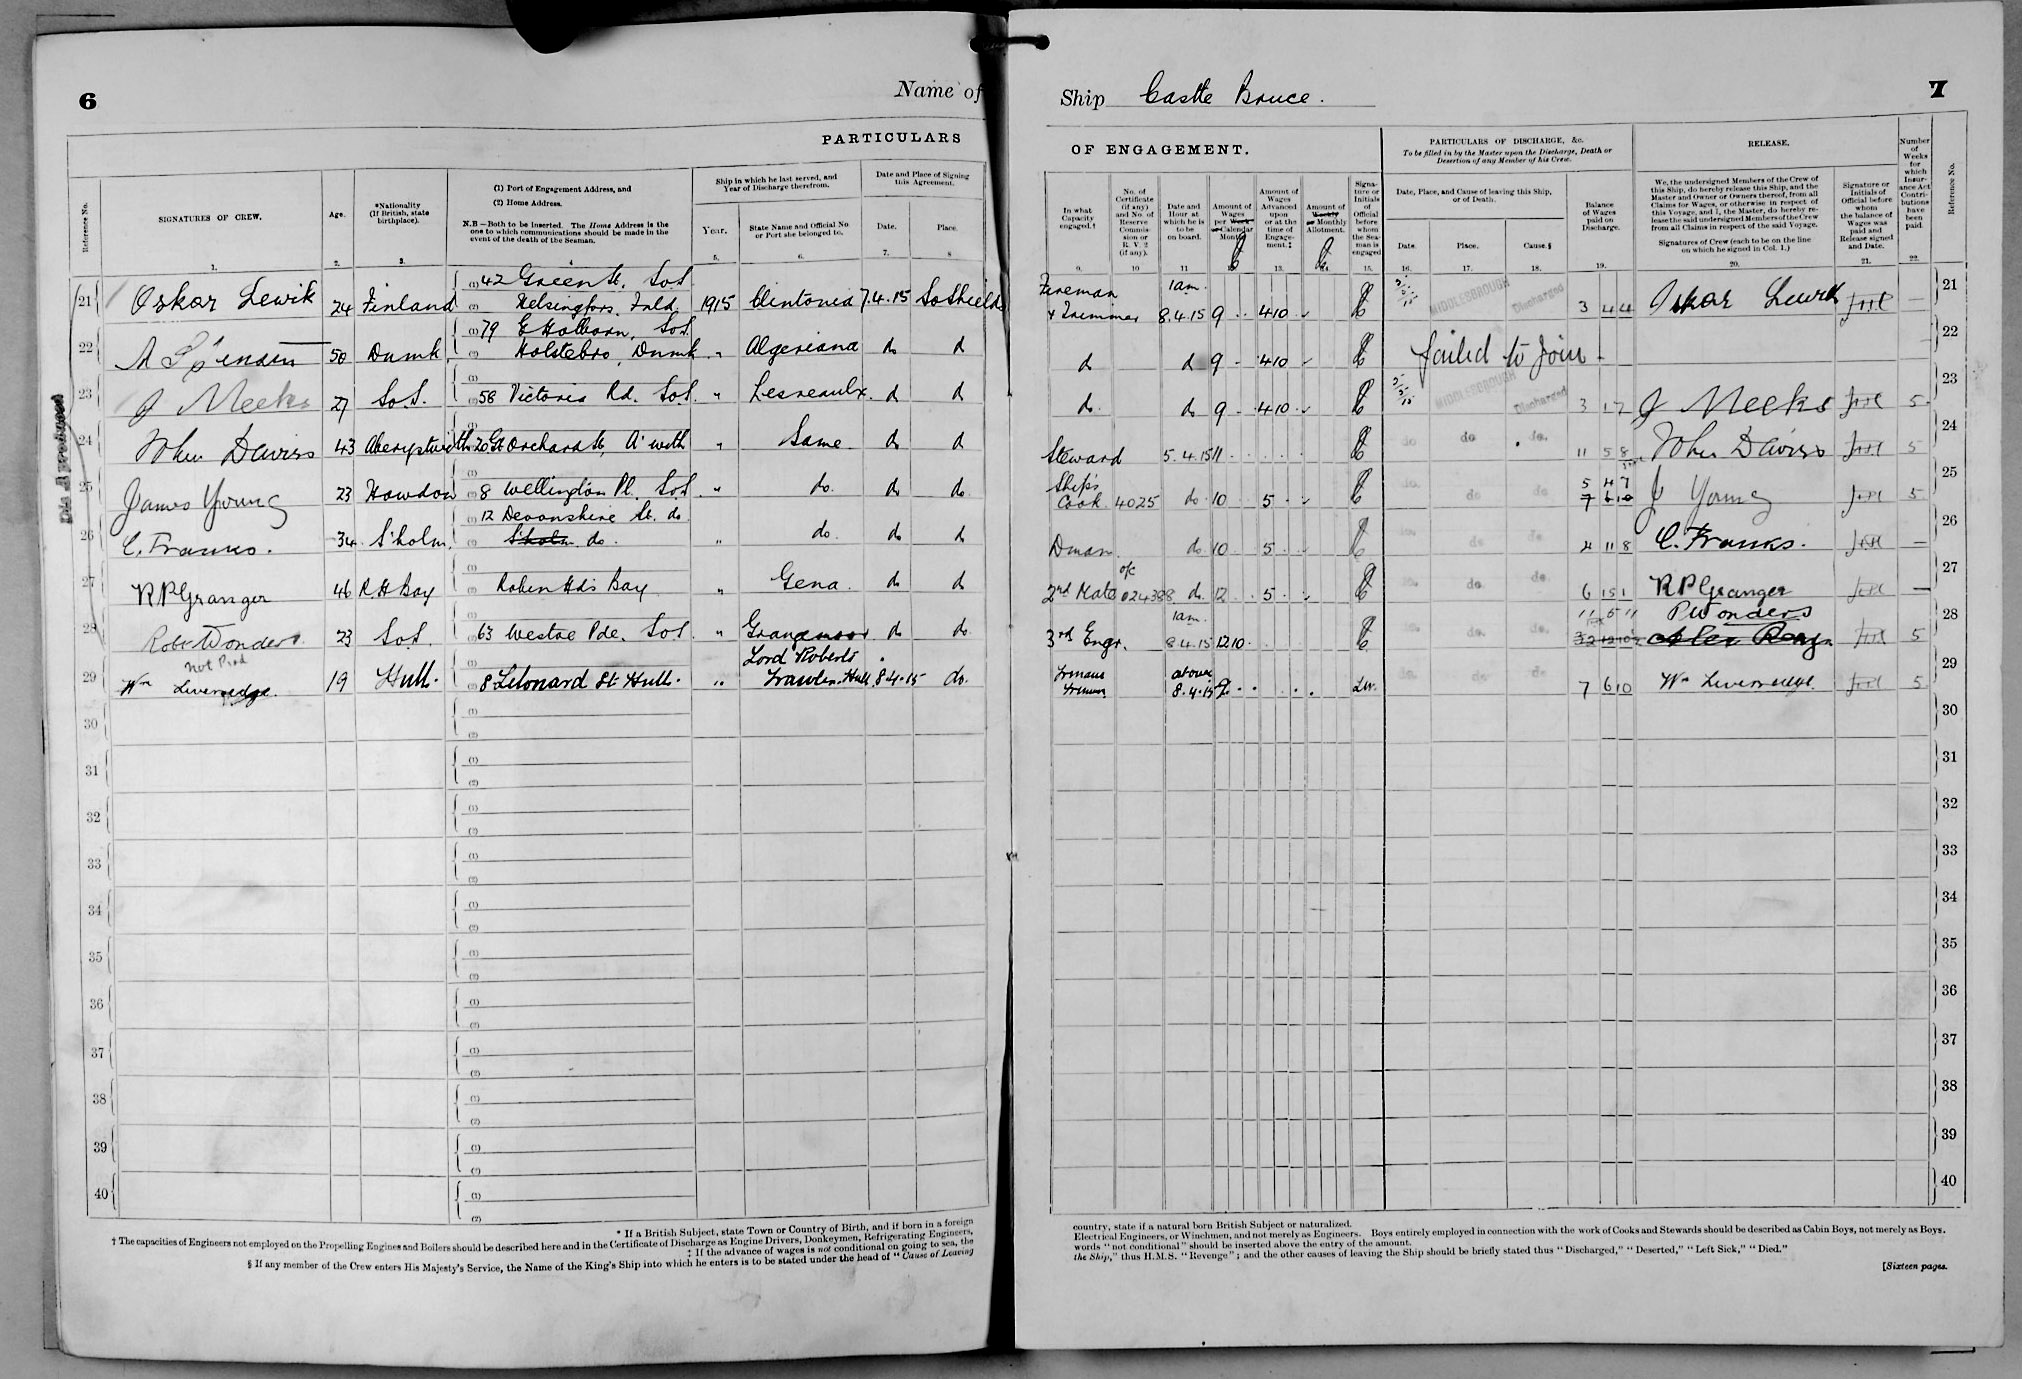 6
Name of
Ship Castle Bruce.
7
PARTICULARS
OF ENGAGEMENT.
PARTICULARS OF DISCHARGE, &c.
To be filled in by the Master upon the Discharge, Death or
Desertion of any Member of his Crew.
RELEASE.
Number
of
Weeks
for
which
Insur-
ance Act
Contri-
butions
have
been
paid.
Reference No.
SIGNATURES OF CREW.
1.
Age.
2.
*Nationality
(If British, state
birthplace).
3.
(1) Port of Engagement Address, and
(2) Home Address.
N.B—Both to be inserted. The Home Address is the
one to which communications should be made in the
event of the death of the Seaman.
Ship in which he last served, and
Year of Discharge therefrom.
Year.
5.
State Name and Official No.
or Port she belonged to.
6.
Date and Place of Signing
this Agreement.
Date.
7.
Place.
8
In what
Capacity
engaged.†
9.
No. of
Certificate
(if any)
and No. of
Reserve
Commis-
sion or
R. V. 2
(if any).
10
Date and
Hour at
which he is
to be
on board.
11
Amount of
Wages
per Week
or Calendar
Month.
Amount of
Wages
Advanced
upon
or at the
time of
Engage-
ment.‡
13.
Amount of
Weekly
or Monthly
Allotment.
Signa-
ture or
Initials
of
Official
before
whom
the Sea-
man is
engaged
15.
Date, Place, and Cause of leaving this Ship,
or of Death.
Date.
16.
Place.
17.
Cause.§
18.
Balance
of Wages
paid on
Discharge.
19.
We, the undersigned Members of the Crew of
this Ship, do hereby release this Ship, and the
Master and Owner or Owners thereof, from all
Claims for Wages, or otherwise in respect of
this Voyage, and I, the Master, do hereby re-
lease the said undersigned Members of the Crew
from all Claims in respect of the said Voyage.
Signatures of Crew (each to be on the line
on which he signed in Col. 1.)
20.
Signature or
Initials of
Official before
whom
the balance of
Wages was
paid and
Release signed
and Date.
21.
22.
Reference No.
21 Oskar Lewik 24 Finland (1) 42 Green St. So.S.
(2) Helsingfors. Fnld. 1915 Clintonia 7.4.15 So Shields
Fireman 1am.
& Trimmer 8.4.15 9 .. 4 10 MIDDLESBROUGH Discharged 3 4 4 Oskar Lewik — 21
22 50 Dnmk. (1) 79 E Holborn, So.S.
(2) Holstebro, Dnmk " Algeriana do d
do d 9 - 4 10 failed to join - 22
23 J Meeks 27 So.S. (2) 58 Victoria Rd. So.S. " Lesreaulx. d d
do. do 9 - 4 10 MIDDLESBROUGH Discharged 3 17 J Meeks 5 23
24 John Davies 43 Aberystwith 20 Gt Orchard St, A'with " Same. do d
Steward 5.4.15 11 do do. do. 11 5 8 John Davies 5 24
25 James Young 23 Howdon (2) 8 Wellington Pl. So.S. " do. do do.
Ship's
Cook. 4025 do. 10 5 do. do do 5 4 7
7 6 10 J Young 5 25
26 C. Franks. 34 S'holm. (1) 12 Devonshire St. do.
(2) S'holm do. " do. do d
Dman. do 10 5 do. do do. 4 11 8 C. Franks. — 26
27 R P Granger 46 R.H Bay Robin Hds Bay " Gena. do d
2nd Mate 024388 do. 12 5 do. do. do. 6 15 1 R P Granger — 27
28 Robt Wonders. 23 So.S. (2) 63 Westoe Pde. So.S. " Grangemoor do do.
1am.
3rd Engr. 8.4.15 12 10 do. do. do. 11 5 11 R Wonders 5 28
29 not Prod
Wm Liversedge. 19 Hull. (2) 8 Leonard St Hull. " Lord Roberts
Trawler. Hull 8.4.15 do.
above
8.4.15 9 do. do. do. 7 6 10 Wm Liversedge. 5 29
30 (1) (2) 30
31 (1) (2) 31
32 (1) (2) 32
33 (1) (2) 33
34 (1) (2) 34
35 (1) (2) 35
36 (1) (2) 36
37 (1) (2) 37
38 (1) (2) 38
39 (1) (2) 39
40 (1) (2) 40
* If a British Subject, state Town or Country of Birth, and if born in a foreign
† The capacities of Engineers not employed on the Propelling Engines and Boilers should be described here and in the Certificate of Discharge as Engine Drivers, Donkeymen, Refrigerating Engineers,
‡ If the advance of wages is not conditional on going to sea, the
§ If any member of the Crew enters His Majesty's Service, the Name of the King's Ship into which he enters is to be stated under the head of "Cause of Leaving
country, state if a natural born British Subject or naturalized.
Electrical Engineers, or Winchmen, and not merely as Engineers. Boys entirely employed in connection with the work of Cooks and Stewards should be described as Cabin Boys, not merely as Boys.
words "not conditional" should be inserted above the entry of the amount.
the Ship," thus H.M.S. "Revenge"; and the other causes of leaving the Ship should be briefly stated thus "Discharged," "Deserted," "Left Sick," "Died."
[Sixteen pages.